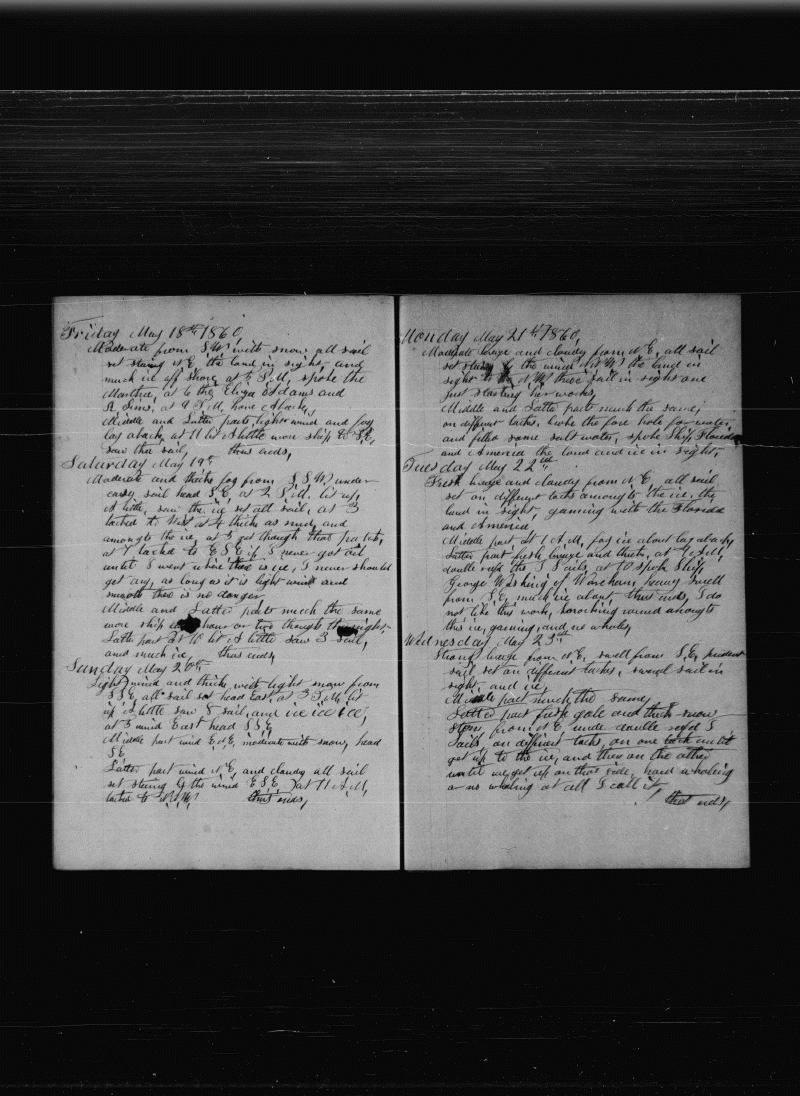 Friday May 18th 1860,
Moderate from S, W, with snow all sail
set steering N E the land in sight, and
much ice off shore at 4 P, M, spoke the
Martha, at 6 the Eliza Adams and
at 9 P, M, hove aback,
Middle and Latter parts, light wind and fog
lay aback, at 11 lit little wore ship to S, E,
saw thre sail, thus ends,
Saturday May 19th
Moderate and thick fog from S S W, under
easy sail head S, E, at 2 P, M, lit up,
A little, saw the ice set all sail, at 3
tacked to West at 4 thick as mud, and
amongts the ice, at 5 got though that patch,
at 7 tacked to E S E if I never got oil
until I went where thre is ice, I never should
get any, as long as it is light wind and
smooth thre is no danger
Middle and Latter parts much the same
wore ship hour or two though the night,
Latter part at 10 lit, A little saw 3 sail,
and much ice, thus ends,
Sunday May 20th
Light wind and thick, with light snow from
S S E, all sail set head East, at 3 P, M, lit
up A little saw 8 sail, and ice ice ice,
at 3 wind East head S S E,
Middle part wind E N E, moderate with snow, head
S E
Latter part wind N E, and cloudy all sail
set steering by the wind E S E, at 11 A, M,
tacked to N N W, thus ends,
Monday May 21st 1860,
Moderate breeze and cloudy from N E, all sail
set the wind N N W the land in
sight to N W three sail in sight one
just starting her works,
Middle and Latter parts much the same,
on different tacks, broke the fore hole for water,
and filled some salt water, spoke Ship Florida
and America the land and ice in sight,
Tuesday May 22nd
Fresh breeze and cloudy from N E, all sail
set on different tacks amongts the ice, the
land in sight, gamming with the Florida
and America,
Middle part at 1 A, M, fog ice about lay aback,
Latter part fresh breeze and thick, at 7 A, M,
double reefd the T Sails, at 10 spoke Ship
George Washing of Wareham, heavy swell
from S, E, much ice about, thus ends, I do
not like this work, knocking around amongts
this ice, gaming, and no whales,
Wednesday May 23rd
Strong breeze from N E, swell from S, E, prudent
sail set on different tackes, several sail in
sight, and ice,
Middle part much the same,
Latter part fresh gale and thick snow
storm from N E, under double reefd T
Sails, on different tacks, on one tack until
get up to the ice, and then on the other
until we get up on that side, hard whaling
or no whaling at all I call it,
thus ends,